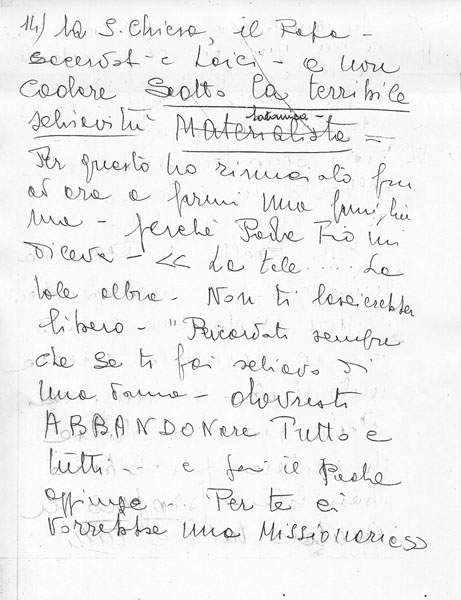 14) La S. Chiesa, il Papa -
sacerdot - e Laici - a non
cadere Sotto La terribile
schiavitù satanica - Materialista =
Per questo ho rinunciato fin
ad ora a farmi una famiglia
mia - perchè Padre Pio mi
diceva - << La tale .... La
tale altra - Non ti lascierebbe
libero - "Ricordati sempre
che se ti fai schiavo di
una donna - dovresti
ABBANDONare Tutto e
tutti - .. e fai il Padre
.. Per te ci
vorrebbe una Missionaria